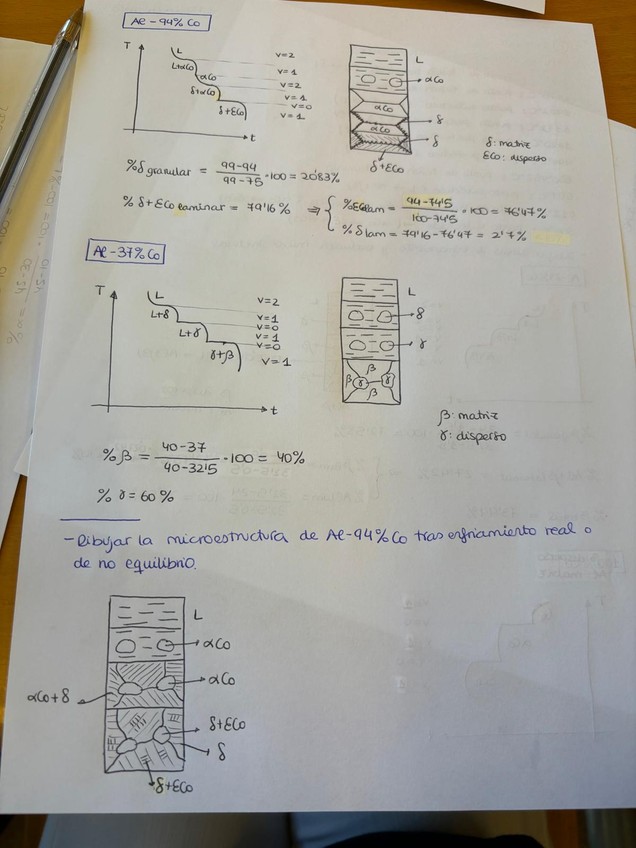 Al-94% Co
T
L
L+αCo
αCo
δ+αCo
δ+εCo
t
v=2
v=1
v=2
v=1
v=0
v=1
L
αCo
αCo
δ
αCo
δ
δ+εCo
δ: matriz
εCo: disperso
%δ granular = 99-94 / 99-75 · 100 = 20'83%
% δ+εCo laminar = 79'16 % ⇒ { %εCo lam = 94-74'5 / 100-74'5 · 100 = 76'47 %
% δ lam = 79'16-76'47 = 2'7 %
Al-37% Co
T
L
L+δ
L+γ
γ+β
t
v=2
v=1
v=0
v=1
v=0
v=1
L
δ
γ
β
β γ γ
β
β: matriz
γ: disperso
% β = 40-37 / 40-32'5 · 100 = 40%
% γ = 60 %
- Dibujar la microestructura de Al-94% Co tras enfriamiento real o
de no equilibrio.
L
αCo
αCo
αCo+δ
δ+εCo
δ
δ+εCo